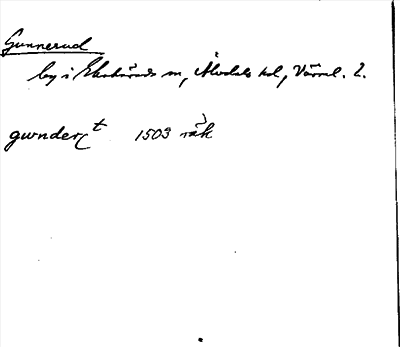 Gunnerud
by i Ekshärads sn, Älvdals hd, Värml. l.
gwnderct 1503 räk